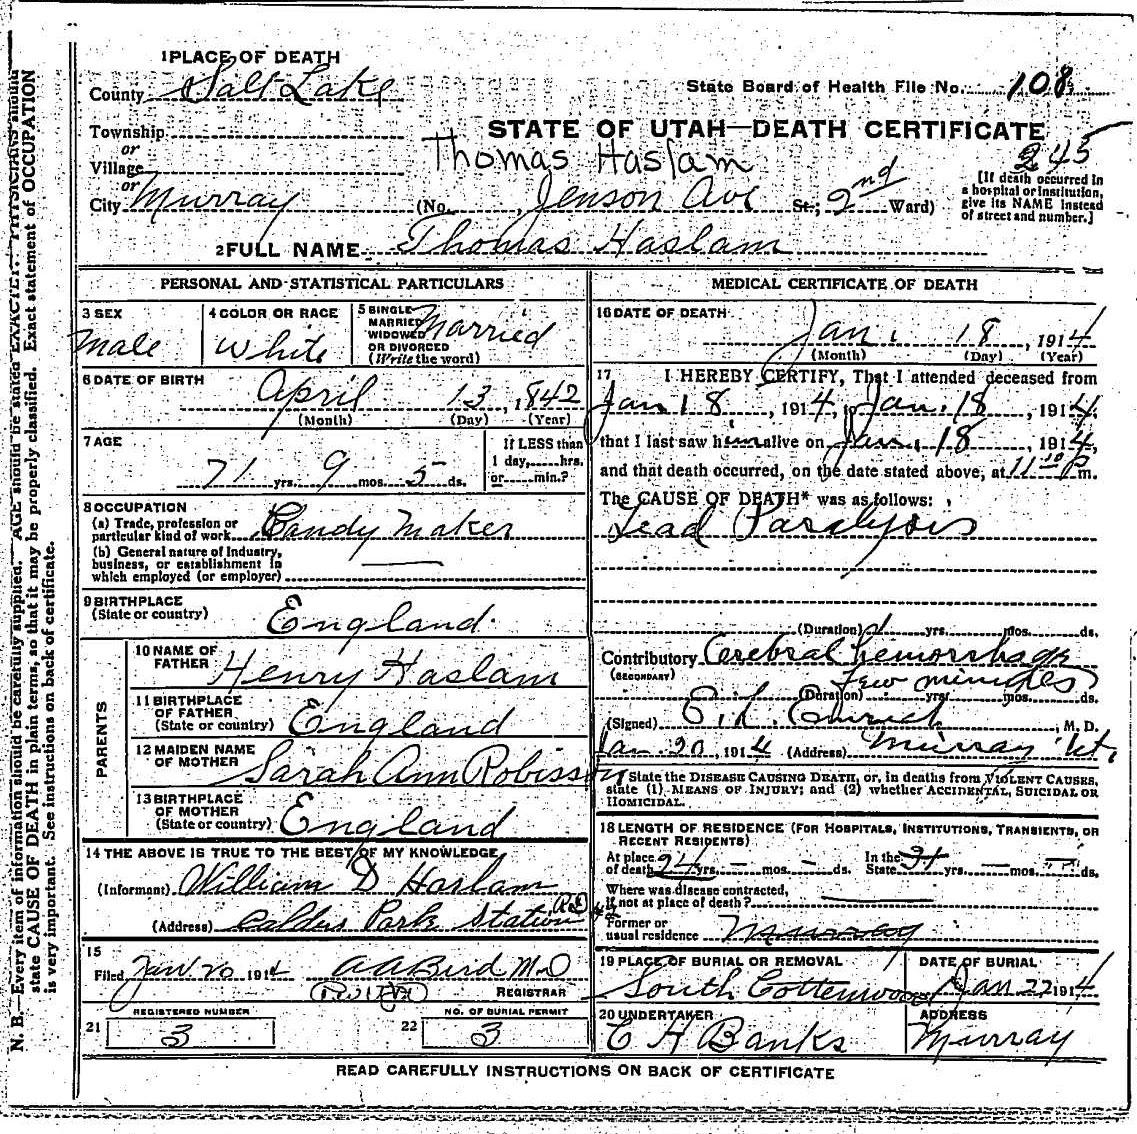 1 PLACE OF DEATH
County Salt Lake
State Board of Health File No. 108
Township
or
Village
or
City Murray
STATE OF UTAH—DEATH CERTIFICATE
Thomas Haslam
245
(No. , Jenson Ave St.; 2nd Ward)
[If death occurred in
a hospital or institution,
give its NAME instead
of street and number.]
2 FULL NAME Thomas Haslam
PERSONAL AND STATISTICAL PARTICULARS
3 SEX
Male
4 COLOR OR RACE
White
5 SINGLE
MARRIED
WIDOWED
OR DIVORCED
(Write the word)
Married
6 DATE OF BIRTH
April 13, 1842
(Month) (Day) (Year)
7 AGE
71 yrs. 9 mos. 5 ds.
If LESS than
1 day, hrs.
or min.?
8 OCCUPATION
(a) Trade, profession or
particular kind of work Candy Maker
(b) General nature of Industry,
business, or establishment in
which employed (or employer)
9 BIRTHPLACE
(State or country) England.
PARENTS
10 NAME OF
FATHER Henry Haslam
11 BIRTHPLACE
OF FATHER
(State or country) England
12 MAIDEN NAME
OF MOTHER Sarah Ann Robisson
13 BIRTHPLACE
OF MOTHER
(State or country) England
14 THE ABOVE IS TRUE TO THE BEST OF MY KNOWLEDGE
(Informant) William D Haslam
(Address) Calders Park Station
15
Filed Jan 20 1914 A A Bird M D
REGISTRAR
REGISTERED NUMBER
21 3
NO. OF BURIAL PERMIT
22 3
MEDICAL CERTIFICATE OF DEATH
16 DATE OF DEATH
Jan. 18, 1914
(Month) (Day) (Year)
17 I HEREBY CERTIFY, That I attended deceased from
Jan 18, 1914, Jan. 18, 1914,
that I last saw him alive on Jan. 18, 1914,
and that death occurred, on the date stated above, at 11 10 P m.
The CAUSE OF DEATH* was as follows:
Lead Paralysis
(Duration) yrs. mos. ds.
Contributory Cerebral hemorrhage
(SECONDARY)
few minutes
(Duration) yrs. mos. ds.
(Signed) , M. D.
Jan. 20, 1914 (Address) Murray Ut.
State the DISEASE CAUSING DEATH, or, in deaths from VIOLENT CAUSES,
state (1) MEANS OF INJURY; and (2) whether ACCIDENTAL, SUICIDAL OR
HOMICIDAL.
18 LENGTH OF RESIDENCE (FOR HOSPITALS, INSTITUTIONS, TRANSIENTS, OR
RECENT RESIDENTS)
At place
of death 24 yrs. – mos. – ds.
In the
State 31 yrs. — mos. — ds.
Where was disease contracted,
if not at place of death?
Former or
usual residence Murray
19 PLACE OF BURIAL OR REMOVAL
South Cottonwood
DATE OF BURIAL
Jan 22 1914
20 UNDERTAKER
C H Banks
ADDRESS
Murray
READ CAREFULLY INSTRUCTIONS ON BACK OF CERTIFICATE
N. B.—Every item of information should be carefully supplied. AGE should be stated EXACTLY. PHYSICIANS should
state CAUSE OF DEATH in plain terms, so that it may be properly classified. Exact statement of OCCUPATION
is very important. See instructions on back of certificate.